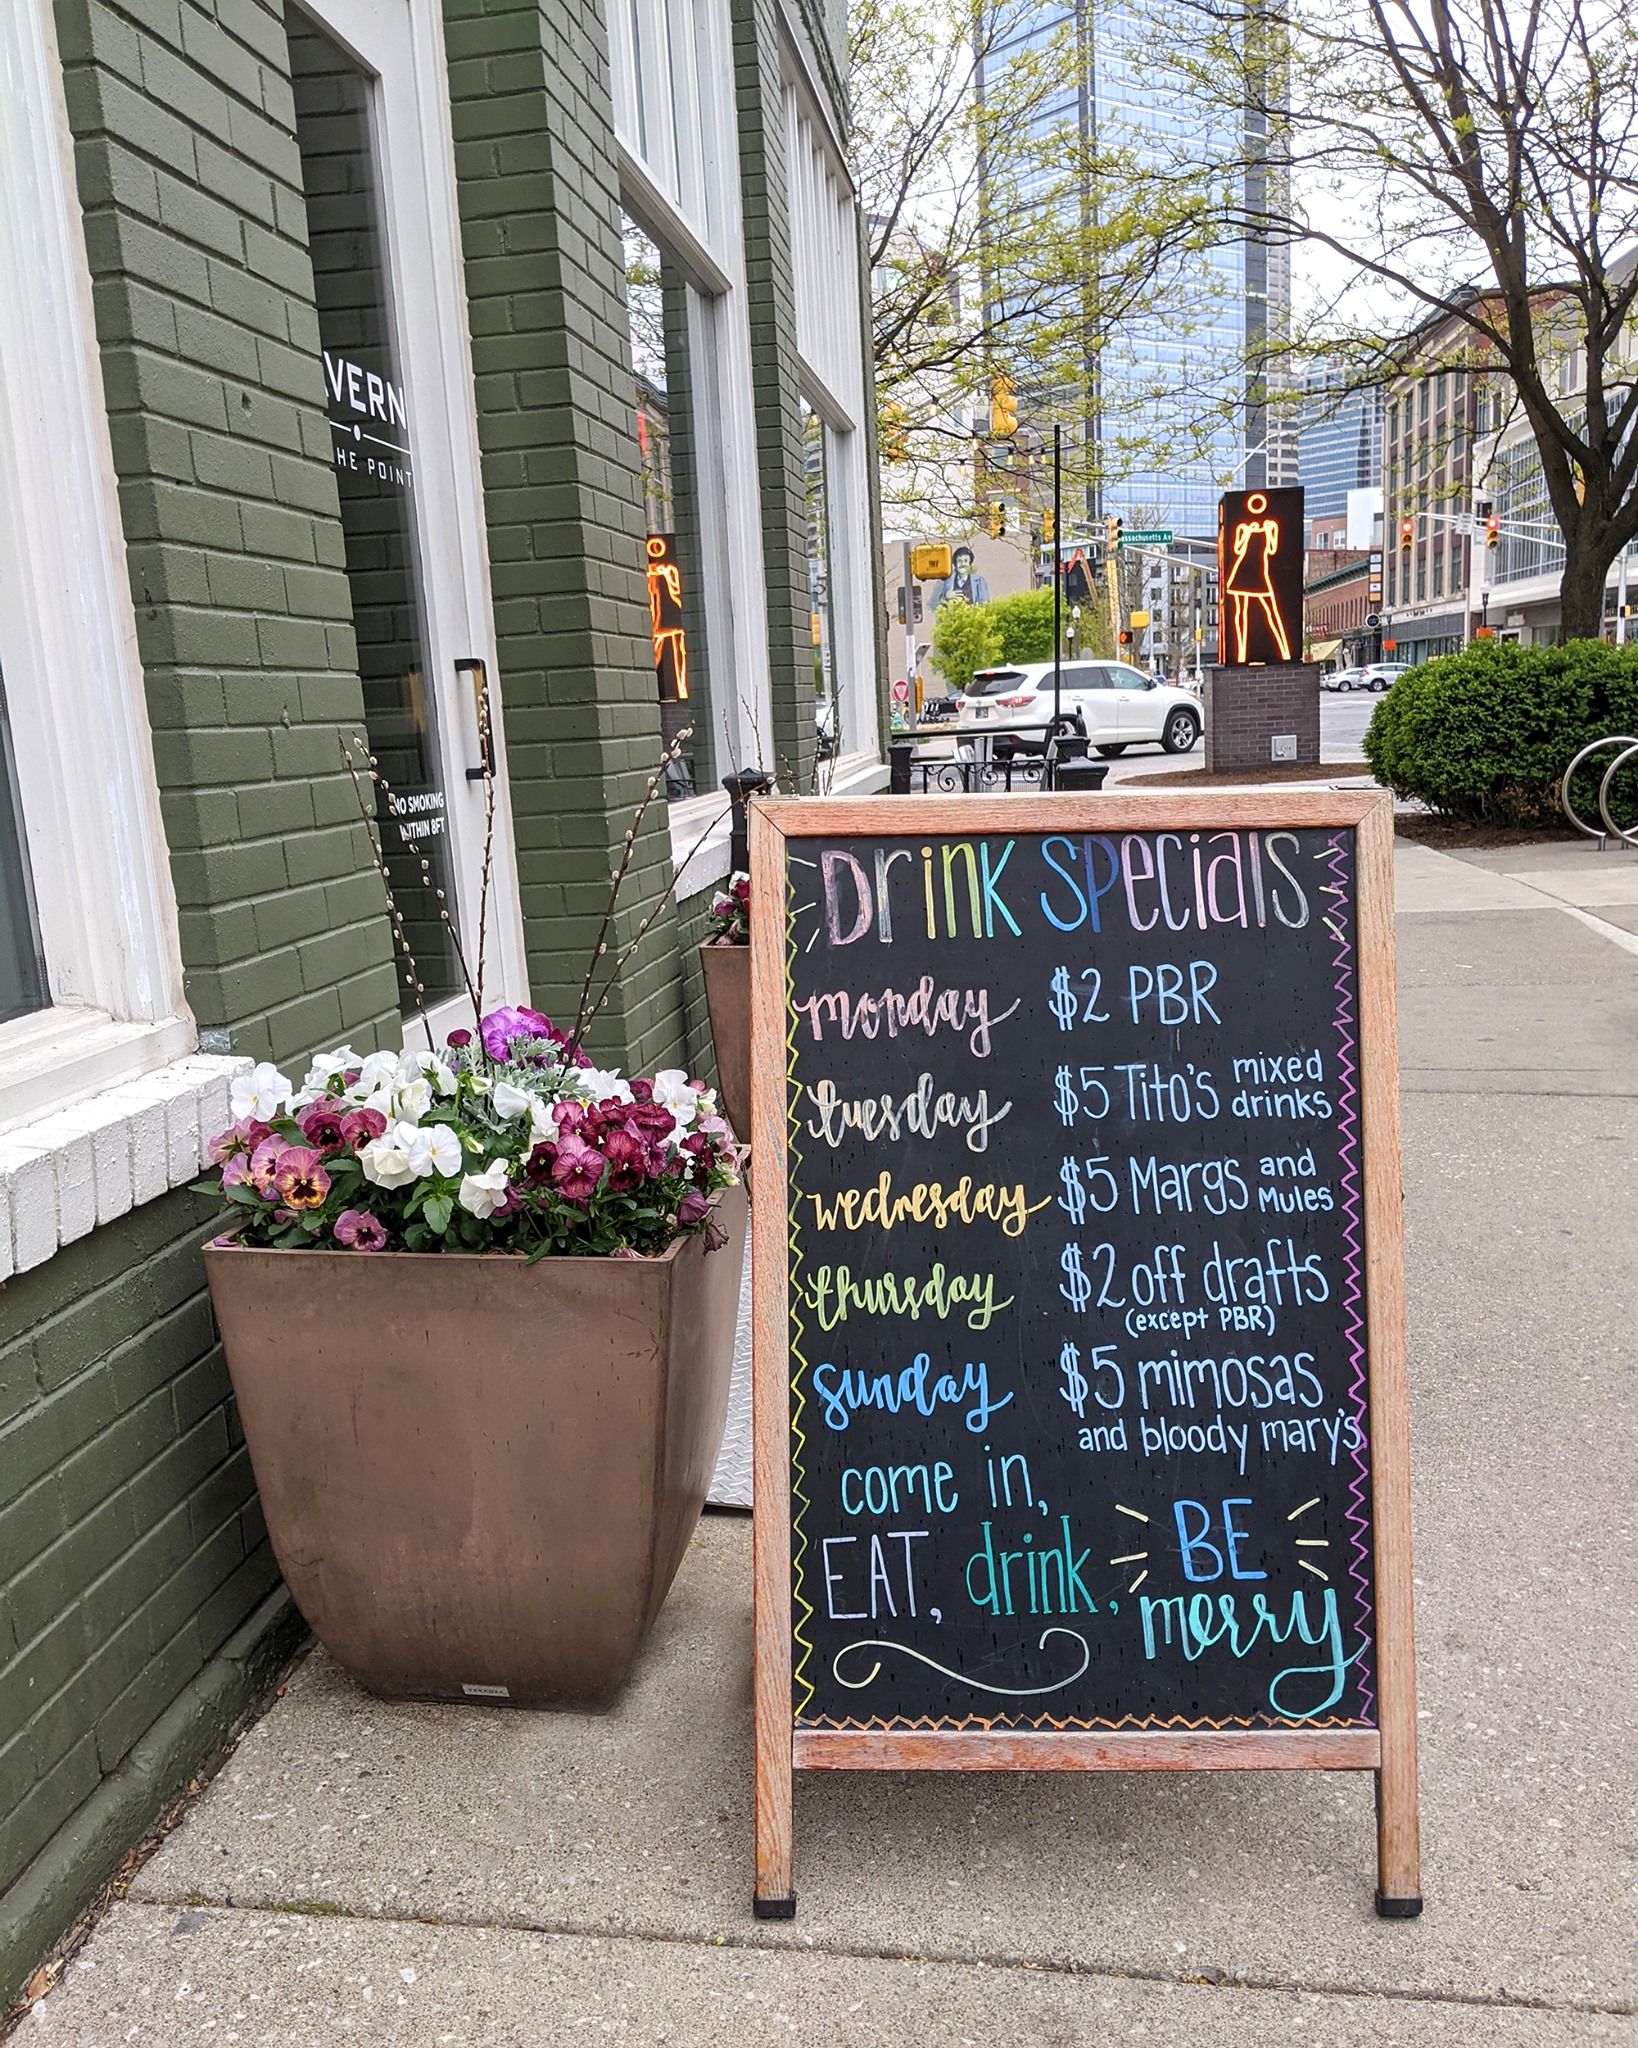 VERN
HE POINT
NO SMOKING
WITHIN 8FT
Massachusetts Av
Drink Specials
monday $2 PBR
tuesday $5 Tito's mixed drinks
wednesday $5 Margs and Mules
thursday $2 off drafts
(except PBR)
sunday $5 mimosas
and bloody mary's
come in,
EAT, drink, BE
merry